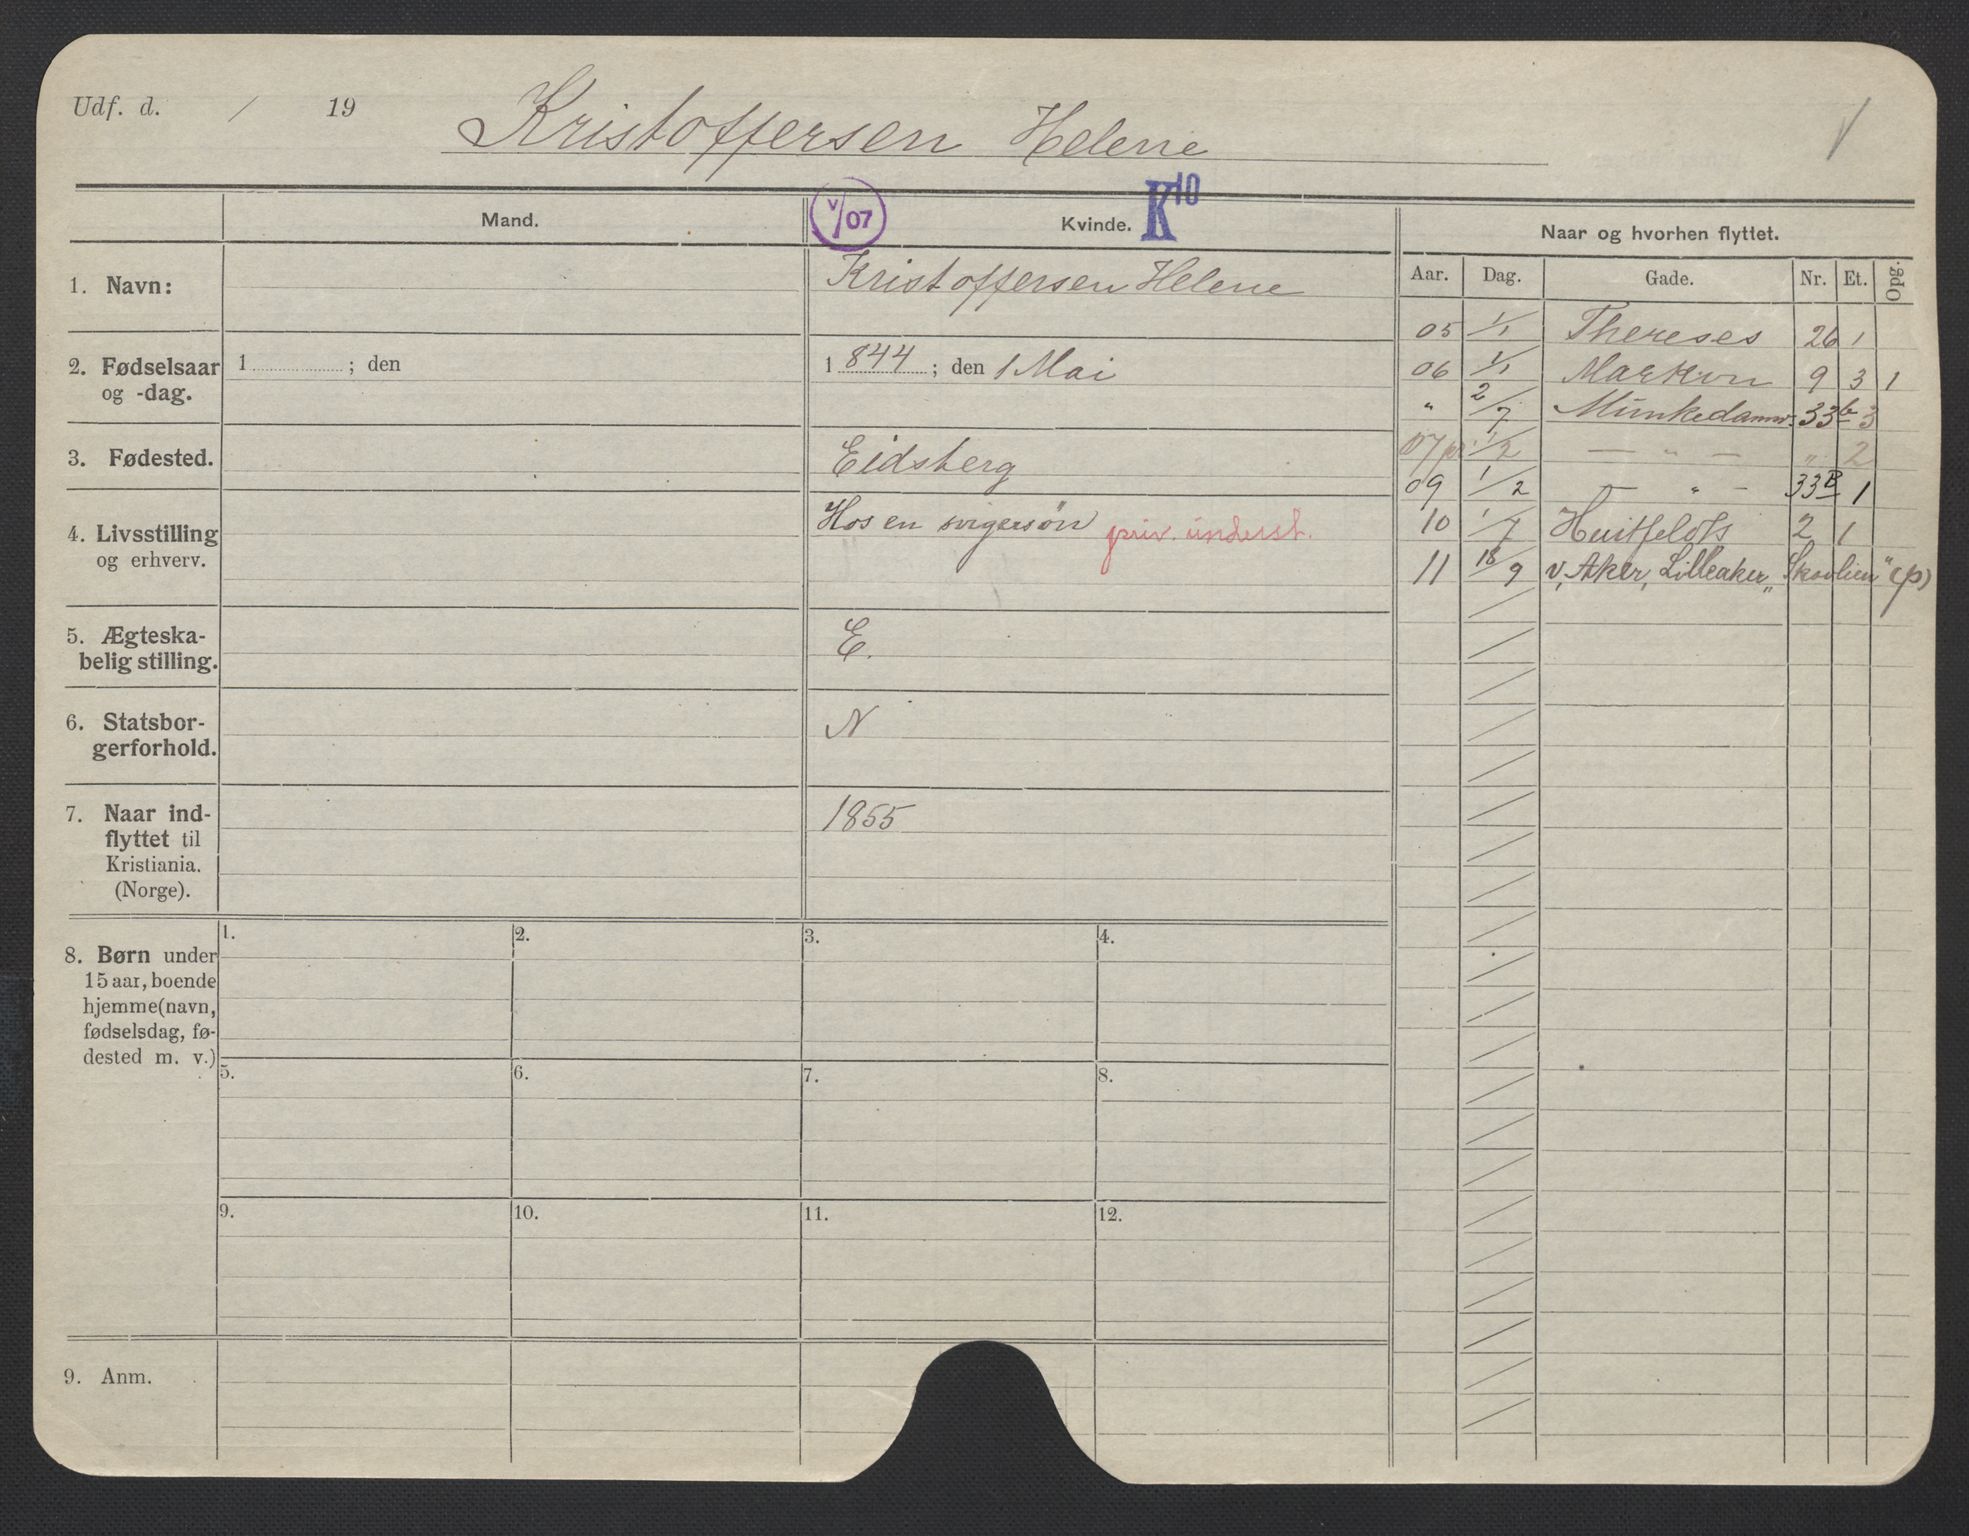 Udf. d. / 19 Kristoffersen Helene
Mand. V/07 Kvinde. K10 Naar og hvorhen flyttet.
Aar. Dag. Gade. Nr. Et. Opg.
1. Navn: Kristoffersen Helene
2. Fødselsaar og -dag. 1 ; den
1844 ; den 1 Mai
3. Fødested. Eidsberg
4. Livsstilling og erhverv. Hos en svigersøn priv. underst.
5. Ægteska-
belig stilling. E.
6. Statsbor-
gerforhold. N
7. Naar ind-
flyttet til
Kristiania.
(Norge). 1855
05 1/1 Thereses 26 1
06 1/1 Markvn 9 3 1
" 2/7 Munkedamsv. 33b 3
07 1/2 — " — " 2
09 1/2 — " — 33B 1
10 1/7 Huitfeldts 2 1
11 18/9 v. Aker, Lilleaker, "Skovlien" (p)
8. Børn under
15 aar, boende
hjemme (navn,
fødselsdag, fø-
dested m. v.)
1. 2. 3. 4.
5. 6. 7. 8.
9. 10. 11. 12.
9. Anm.